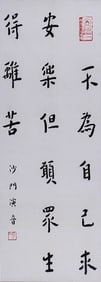 不為自己求
安樂但願眾生
得離苦
沙門演音